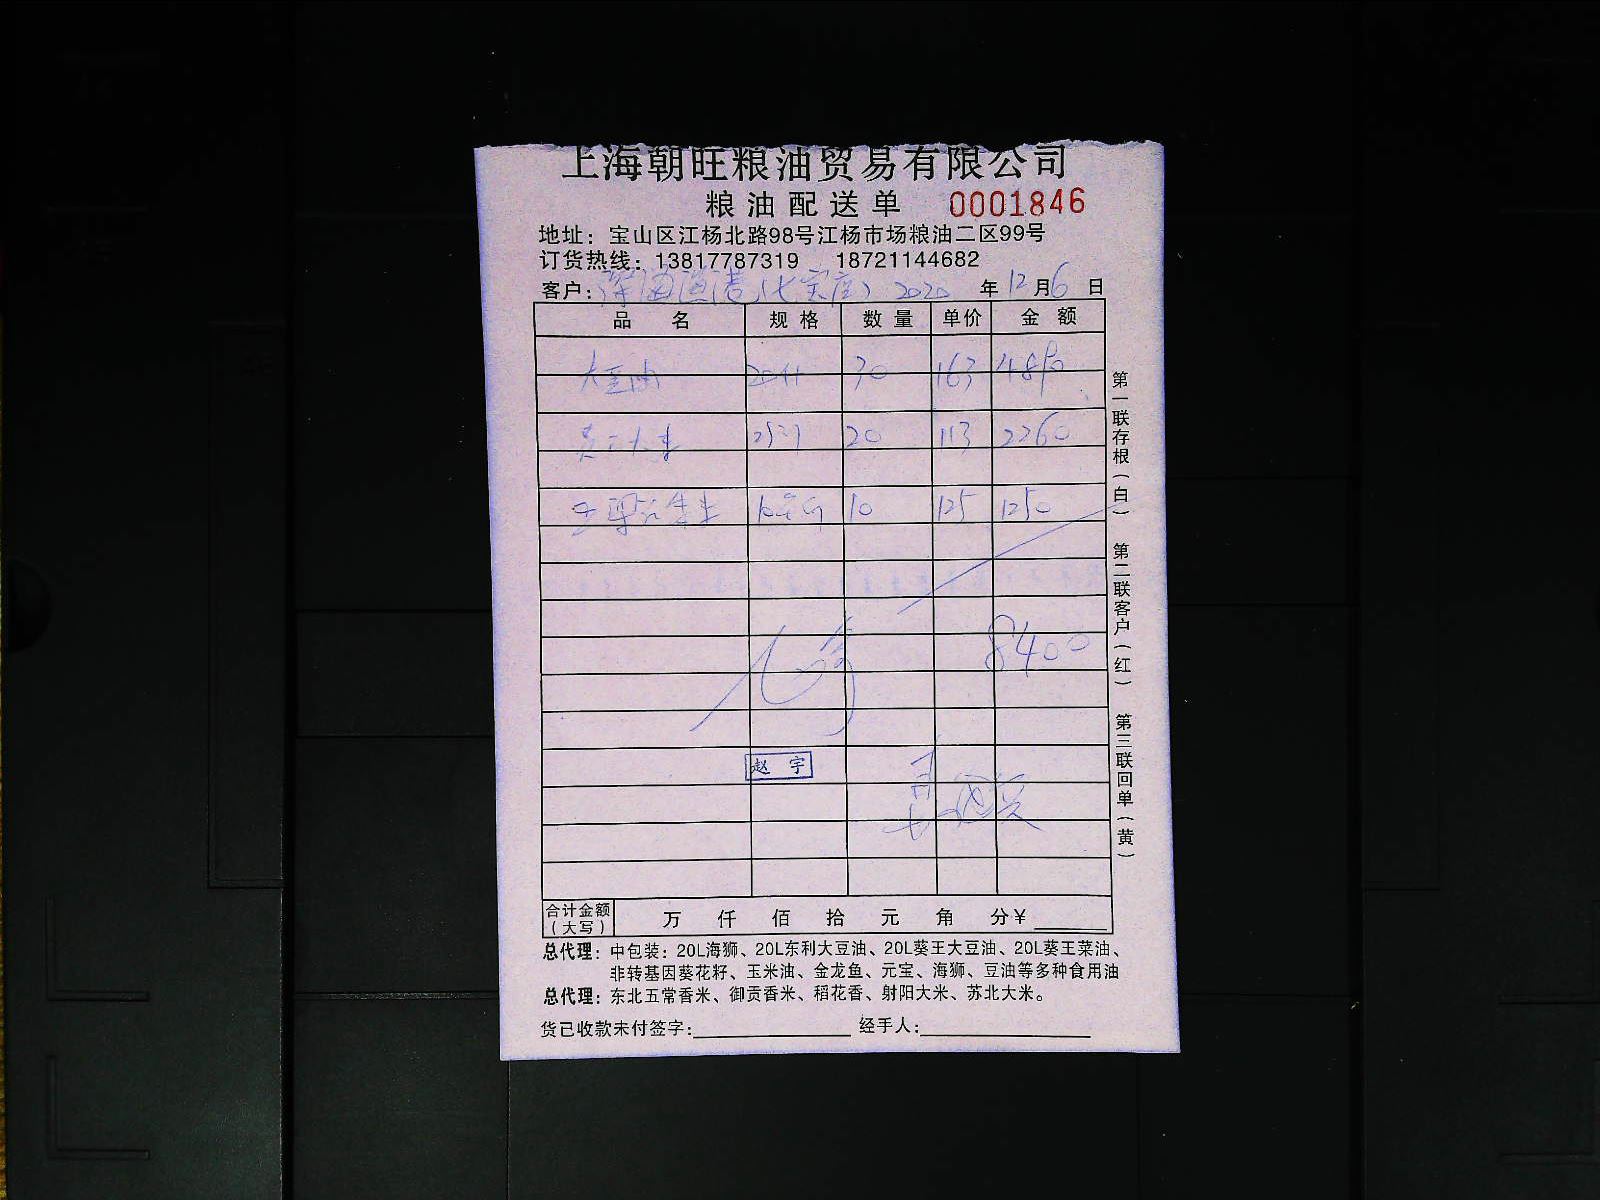 上海朝旺粮油贸易有限公司
粮油配送单 0001846
地址：宝山区江杨北路98号江杨市场粮油二区99号
订货热线：13817787319 18721144682
客户：深海渔港（七宝店） 2020 年 12 月 6 日
品 名 规 格 数 量 单价 金 额
大豆油 20升 30 163 4890
员工大米 20 113 2260
10 125 1250
8400
赵 宇
合计金额（大写） 万 仟 佰 拾 元 角 分￥
总代理：中包装：20L海狮、20L东利大豆油、20L葵王大豆油、20L葵王菜油、
非转基因葵花籽、玉米油、金龙鱼、元宝、海狮、豆油等多种食用油
总代理：东北五常香米、御贡香米、稻花香、射阳大米、苏北大米。
货已收款未付签字： 经手人：
第一联存根（白） 第二联客户（红） 第三联回单（黄）